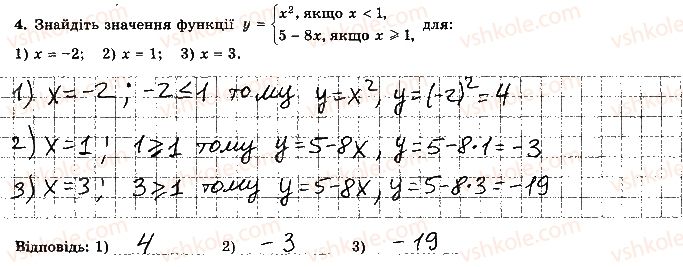 4. Знайдіть значення функції y = {x², якщо x < 1, для:
5 − 8x, якщо x ⩾ 1,
1) x = −2; 2) x = 1; 3) x = 3.
1) x=-2; -2≤1 тому y=x², y=(-2)²=4
2) x=1; 1⩾1 тому y=5-8x, y=5-8·1=-3
3) x=3; 3⩾1 тому y=5-8x, y=5-8·3=-19
Відповідь: 1) 4 2) -3 3) -19
vshkole.com